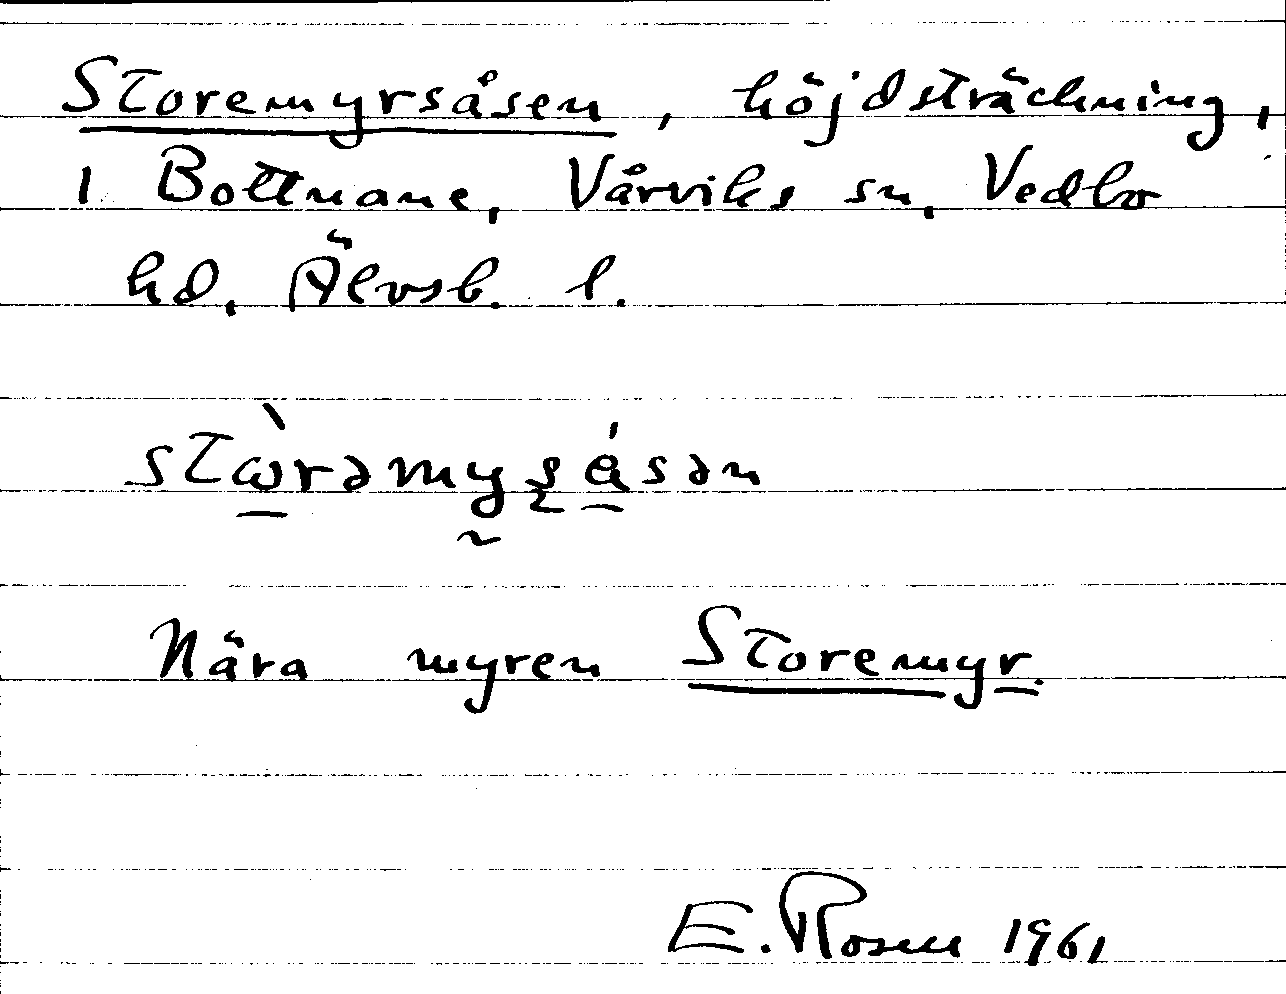 Storemyrsåsen, höjdsträckning,
i Bottnane, Vårviks sn, Vedbo
hd, Älvsb. l.
stὼrəmyʂåsən
Nära myren Storemyr.
E. Rosell 1961